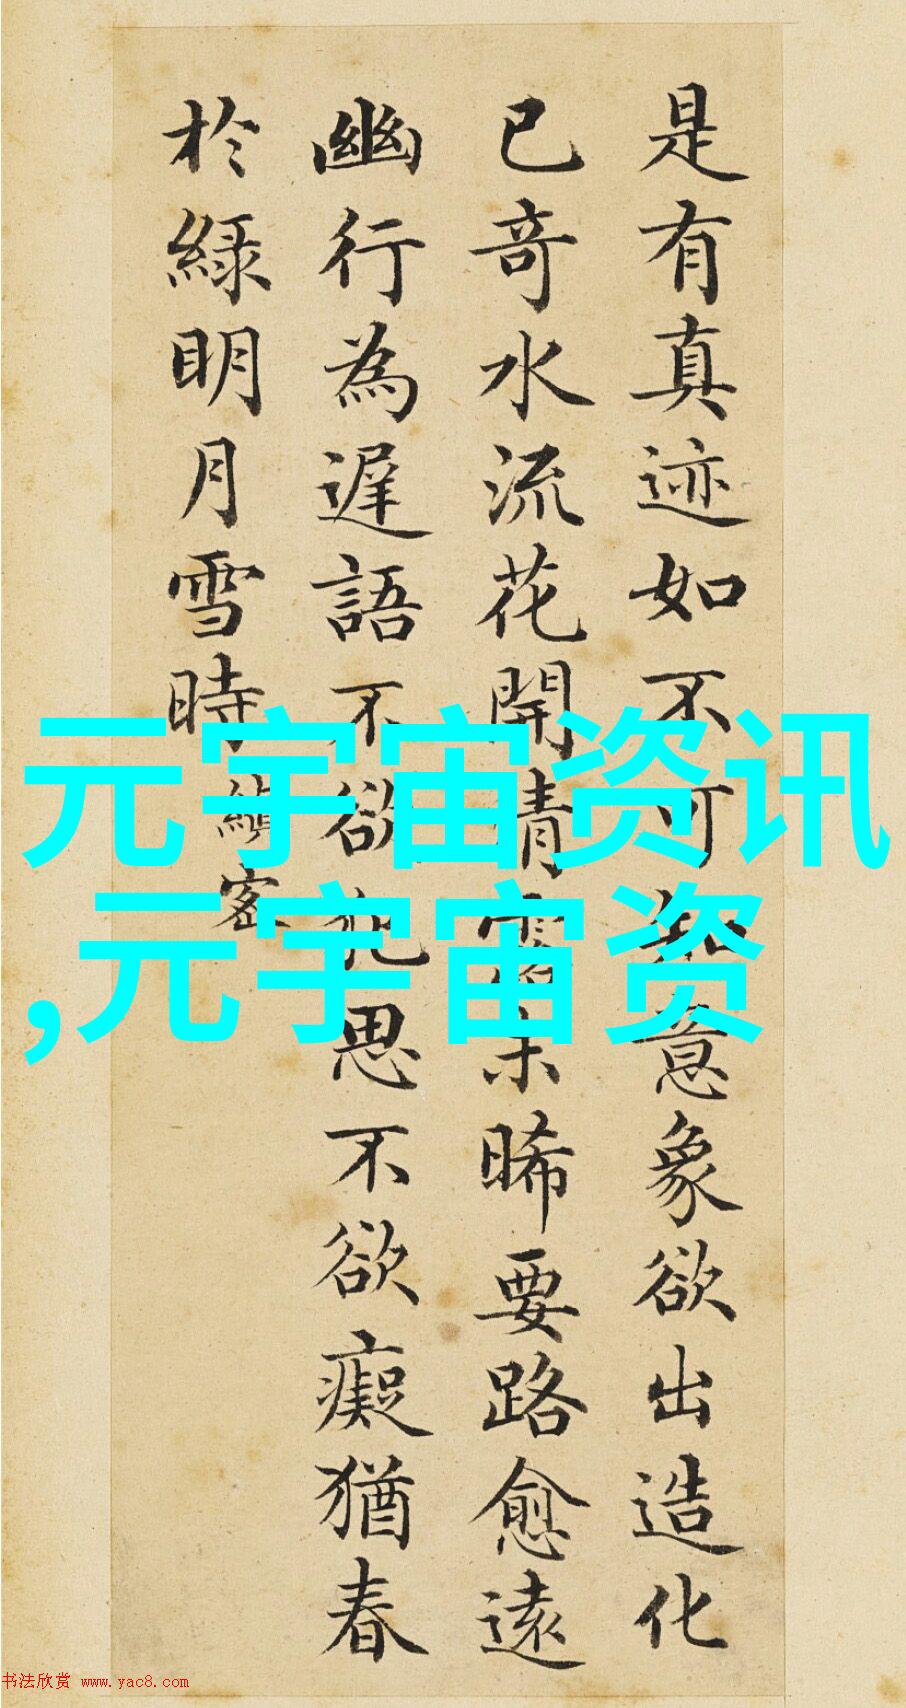 是有真迹如不可知意象欲出造化
已奇水流花開清露未晞要路愈遠
幽行為遲語不欲犯思不欲癡猶春
於綠明月雪時縝密
元宇宙资讯
,元宇宙资
书法欣赏 www.yac8.com